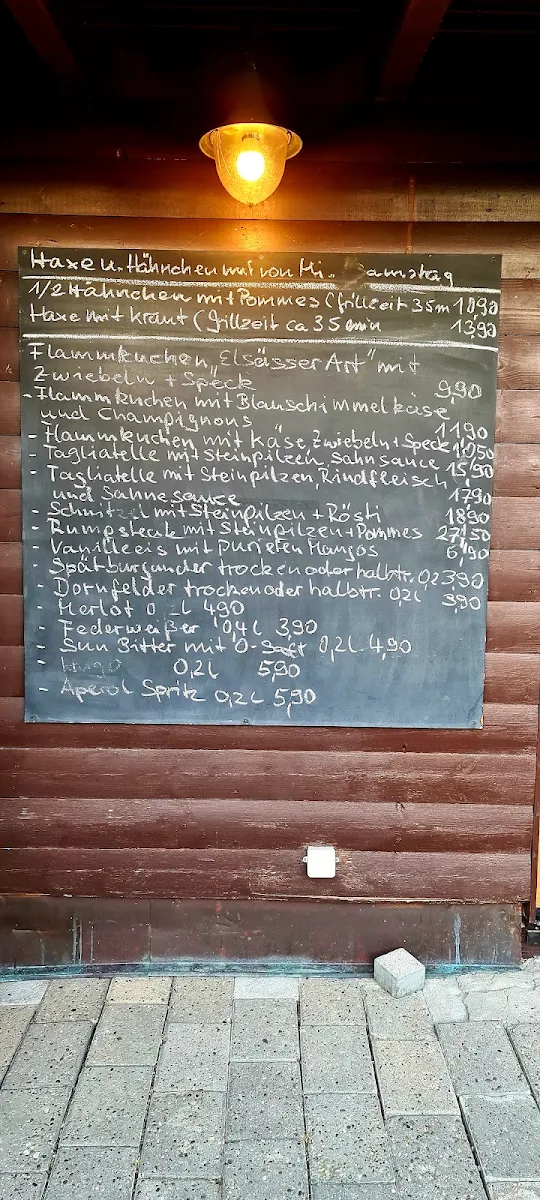 Haxe u. Hähnchen nur von Mi. Samstag
1/2 Hähnchen mit Pommes (Grillzeit 35m 10,90
Haxe mit Kraut (Grillzeit ca 35 min 13,90
Flammkuchen "Elsässer Art" mit
Zwiebeln + Speck 9,90
- Flammkuchen mit Blauschimmelkäse
und Champignons 11,90
- Flammkuchen mit Käse Zwiebeln + Speck 10,50
- Tagliatelle mit Steinpilzen, Sahnsauce 15,90
- Tagliatelle mit Steinpilzen, Rindfleisch
und Sahnesauce 17,90
- Schnitzel mit Steinpilzen + Rösti 18,90
- Rumpsteak mit Steinpilzen + Pommes 27,50
- Vanilleeis mit pürierten Mangos 6,90
- Spätburgunder trocken oder halbtr. 0,2 3,90
- Dornfelder trocken oder halbtr. 0,2l 3,90
- Merlot 4,90
- Federweißer 0,4l 3,90
- Sun Bitter mit O-Saft 0,2l 4,90
- 0,2l 5,90
- Aperol Spritz 0,2l 5,90